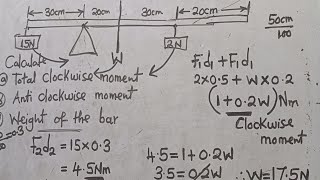 30cm 20cm 30cm 20cm
50cm
100
15N
W
2N
Calculate
Total clockwise moment
Anti clockwise moment
Weight of the bar
F₁d₁ + F₁d₁
2×0.5 + W×0.2
(1+0.2W)Nm
Clockwise
moment
F₂d₂ = 15×0.3
= 4.5Nm
4.5=1+0.2W
3.5=0.2W ∴W=17.5N